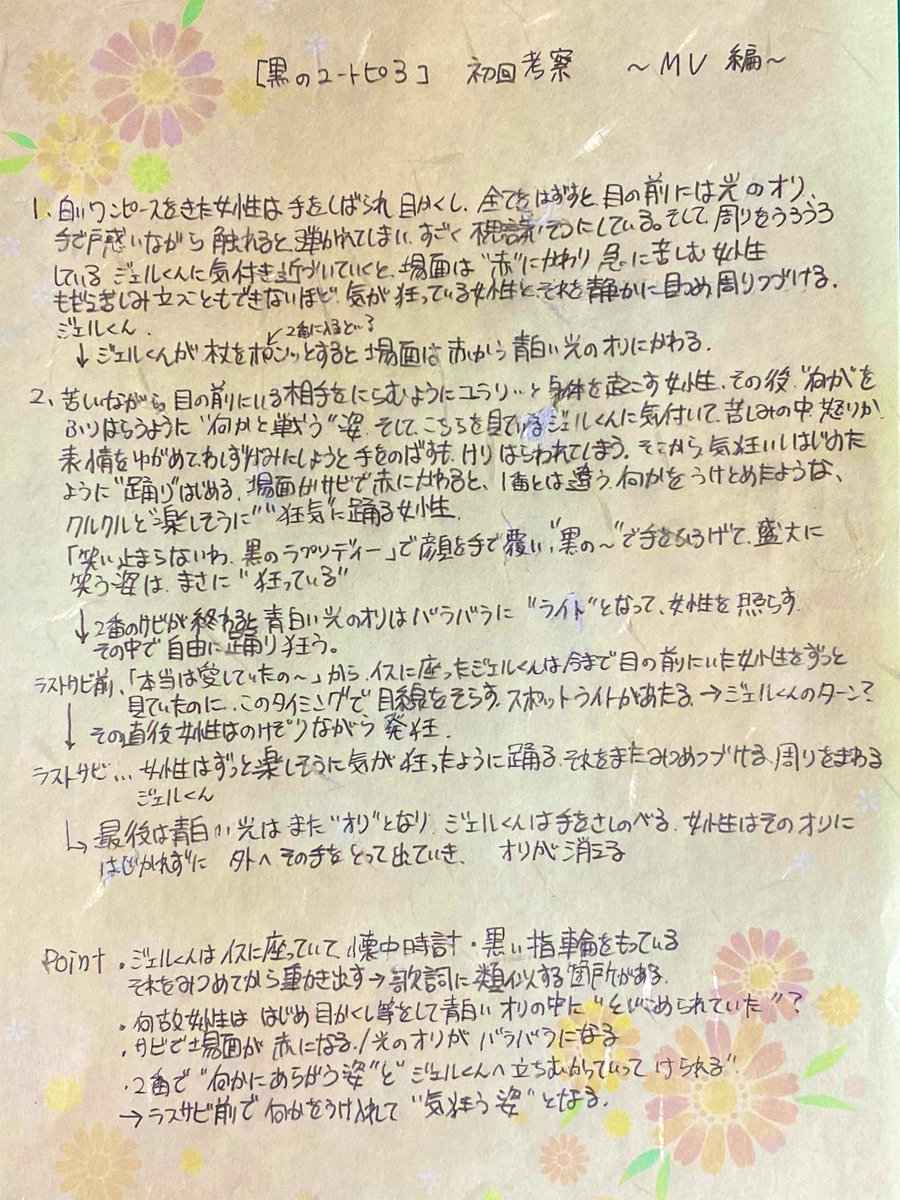 [黒のユートピア] 初回考察 ～MV 編～
1、白いワンピースをきた女性は手をしばられ 目かくし、全てをはずすと 目の前には光のオリ、
手で戸惑いながら 触れると、弾かれてしまい、すごく 不思議そうにしている。そして、周りをうろうろ
している ジェルくんに気付き近づいていくと、場面は"赤"にかわり 急に苦しむ女性
もだえ苦しみ立つこともできないほど、気が狂っている女性と、それを静かに見つめ周りつづける、
ジェルくん、
2番に入るという
↓ジェルくんが杖をポンッとすると 場面は赤から 青白い光のオリにかわる.
2、苦しいながら、目の前にいる相手をにらむようにユラリ…と身体を起こす女性、その後、"何か"を
ふりはらうように "何かと戦う"姿、そして、こちらを見ているジェルくんに気付いて、苦しみの中、怒りか
表情をゆがめて、わしずかみにしようと手をのばすも、けりはらわれてしまう。そこから 気狂いしはじめた
ように"踊り"はじめる、場面がサビで赤にかわると、1番とは違う、何かをうけとめたような、
クルクルと"楽しそうに" "狂気"に踊る女性.
「笑い止まらないわ、黒のラプソディー」で顔を手で覆い、"黒の～"で手をひろげて、盛大に
笑う姿は、まさに"狂っている"
↓2番のサビが終わると 青白い光のオリは バラバラに "ライト"となって、女性を照らす.
その中で自由に踊り狂う。
ラストサビ前、「本当は愛していたの～」から、イスに座ったジェルくんは今まで目の前にいた女性をずっと
見ていたのに、このタイミングで目線をそらす、スポットライトがあたる.→ジェルくんのターン?
↓その直後 女性はのけぞりながら 発狂.
ラストサビ… 女性はずっと楽しそうに気が狂ったように踊る、それをまたみつめつづける、周りをまわる
ジェルくん
↳最後は青白い光はまた"オリ"となり、ジェルくんは手をさしのべる、女性はそのオリに
はじかれずに 外へその手をとって出ていき、 オリが消える
Point ・ジェルくんはイスに座っていて、懐中時計・黒い指輪をもっている
それをみつめてから動き出す→歌詞に類似する箇所がある.
・何故女性は はじめ目かくし等をして青白いオリの中に"とじこめられていた"?
・サビで場面が赤になる./光のオリが バラバラになる
・2番で"何かにあらがう姿"と"ジェルくんへ立ちむかっていって けられる"
→ラスサビ前で何かをうけ入れて "気狂う姿"となる.